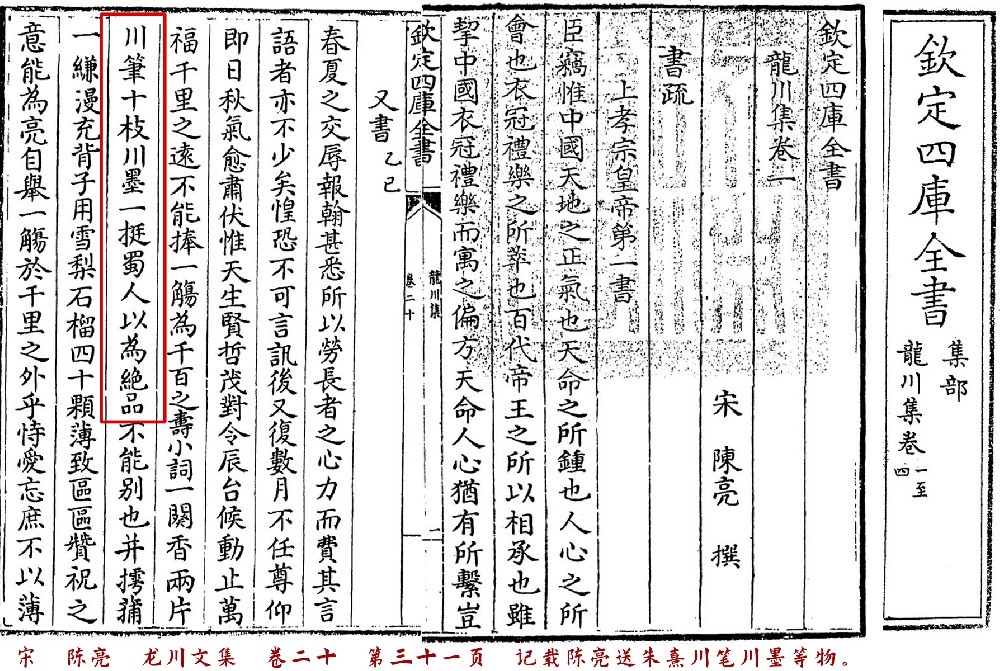 欽定四庫全書
集部
龍川集卷一至四
欽定四庫全書
龍川集卷一
宋 陳亮 撰
書疏
上孝宗皇帝第一書
臣竊惟中國天地之正氣也天命之所鍾也人心之所
會也衣冠禮樂之所萃也百代帝王之所以相承也雖
挈中國衣冠禮樂而寓之偏方天命人心猶有所繫豈
欽定四庫全書
龍川集
卷二十
二
又書乙巳
春夏之交辱報翰甚悉所以勞長者之心力而費其言
語者亦不少矣惶恐不可言訊後又復數月不任尊仰
即日秋氣愈肅伏惟天生賢哲茂對令辰台候動止萬
福千里之遠不能捧一觴為千百之壽小詞一闋香兩片
川筆十枝川墨一挺蜀人以為絕品不能別也并摴蒲
一縑漫充背子用雪梨石榴四十顆薄致區區贊祝之
意能為亮自舉一觴於千里之外乎恃愛忘庶不以薄
宋 陈亮 龙川文集 卷二十 第三十一页 记载陈亮送朱熹川笔川墨等物。